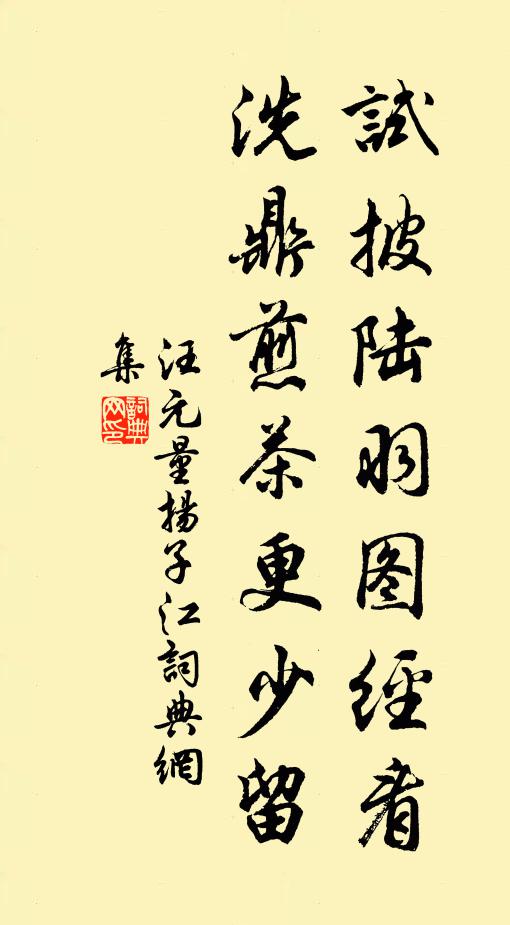 試披陆羽图經看
洗鼎煎茶更少留
汪元量揚子江詞典網
集
詞典
网印